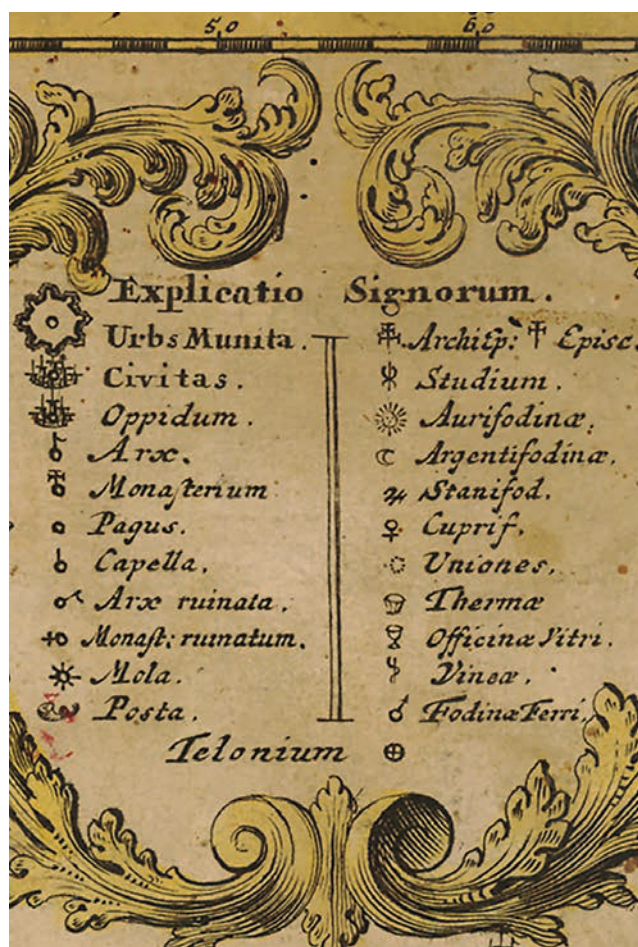 50 60
Explicatio Signorum.
Urbs Munita.
Civitas.
Oppidum.
Arx.
Monasterium
Pagus.
Capella.
Arx ruinata.
Monast: ruinatum.
Mola.
Posta.
ArchiEp: Episc.
Studium.
Aurifodinæ.
Argentifodinæ.
Stanifod.
Cuprif.
Uniones.
Thermæ
Officinæ Vitri.
Vineæ.
Fodinæ Ferri.
Telonium